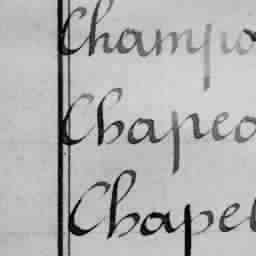 Champo
Chapea
Chapel